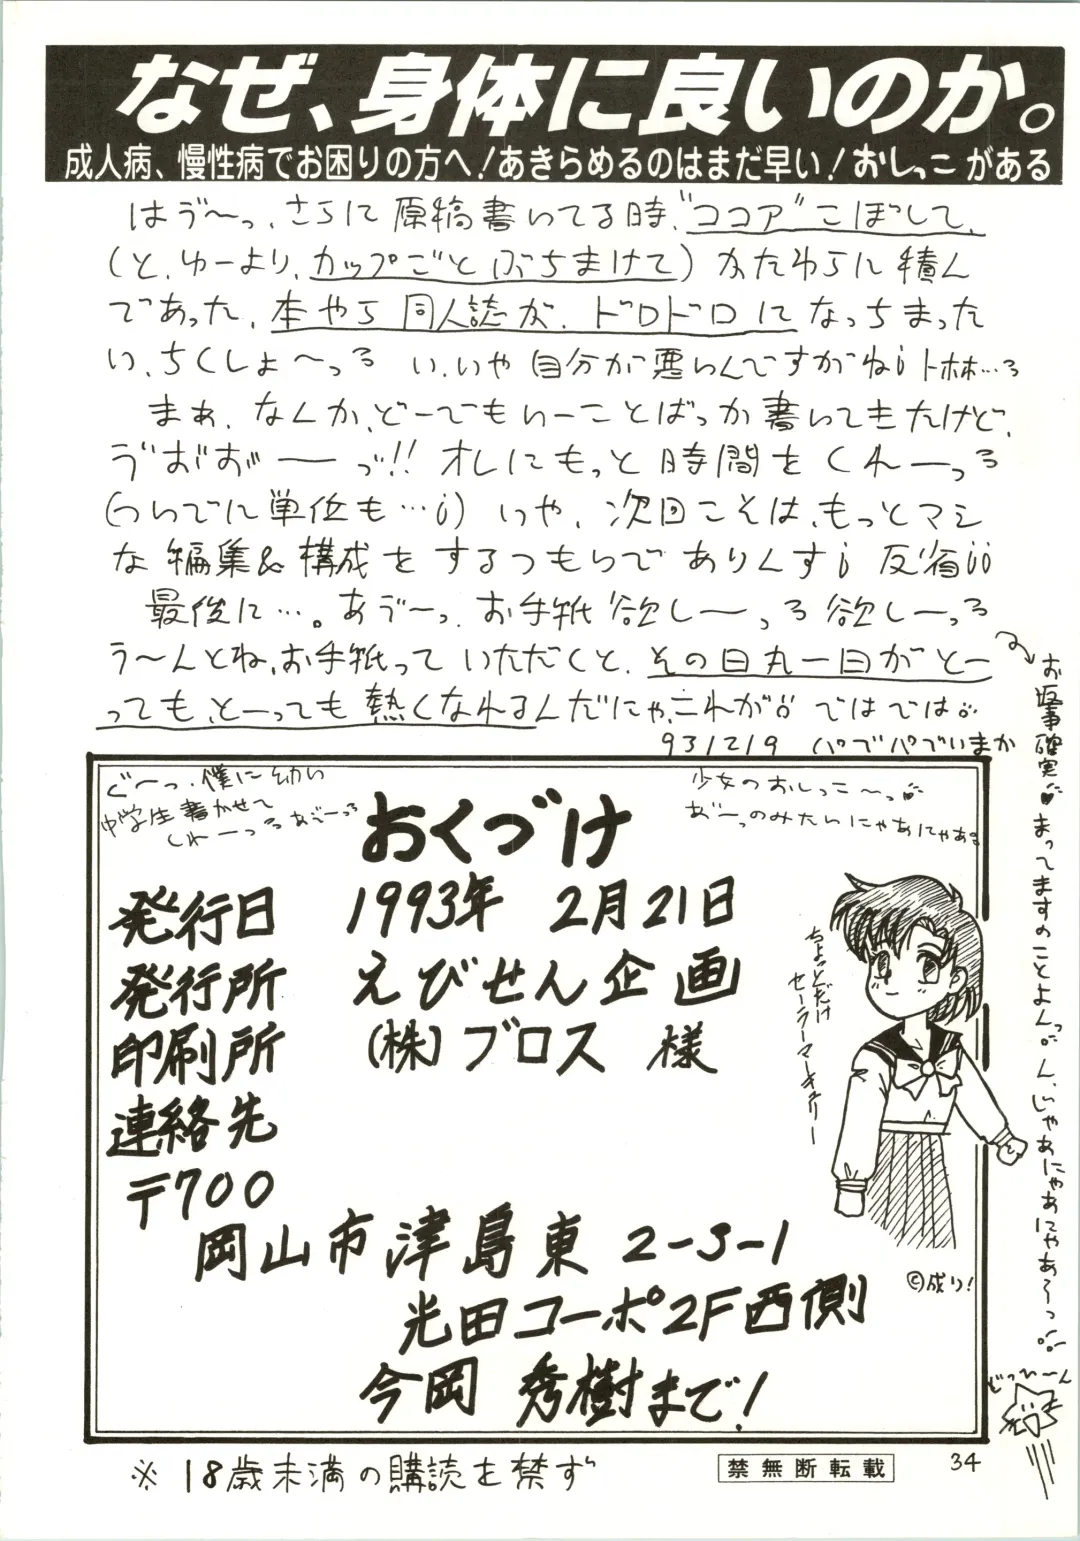 なぜ、身体に良いのか。
成人病、慢性病でお困りの方へ！あきらめるのはまだ早い！おしっこがある
はゔ〜っ、さらに原稿書いてる時、"ココア"こぼして、
(と、ゆーより、カップごとぶちまけて)かたわらに積ん
であった、本やら同人誌が、ドロドロになっちまった
い、ちくしょ〜っる い、いや自分が悪いんですがね¡ トホホ…る
まぁ、なんか、どーでもいーことばっか書いてきたけど、
オレにもっと時間をくれーっる
(ついでに単位も…¡) いや、次回こそは、もっとマシ
な編集&構成をするつもらでありんす¡ 反省¡¡
最後に…。あゔーっ、お手紙欲しーっる欲しーっる
う〜んとね、お手紙っていただくと、その日丸一日がとー
っても、とーっても熱くなれるんだにゃ、これが ではでは
931219 パブパブいまか
お返事確実 まってますのことよんっ ん、じゃあにゃあにゃあ〜っ
おくづけ
発行日 1993年 2月21日
発行所 えびせん企画
印刷所 (株)ブロス 様
連絡先
〒700
岡山市津島東 2-3-1
光田コーポ2F西側
今岡 秀樹まで！
ちょっとだけ
セーラーマーキュリー
©成り！
どっひーん
※ 18歳未満の購読を禁ず
禁無断転載
34